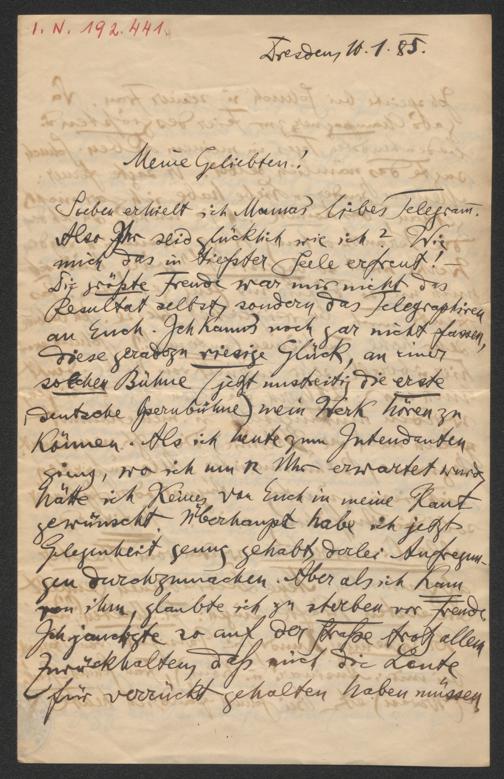 I. N. 192.441.
Dresden, 10.1.85.
Meine Geliebten!
Soeben erhielt ich Mamas liebes Telegram.
Also Ihr seid glücklich wie ich? Wie
mich das in tiefster Seele erfreut! –
Die größte Freude war mir nicht das
Resultat selbst, sondern das Telegraphiren
an Euch. Ich kann's noch gar nicht fassen,
diese geradezu riesige Glück, an einer
solchen Bühne (jetzt unstreitig die erste
deutsche Opernbühne) mein Werk hören zu
können. Als ich heute zum Intendanten
ging, wo ich um 12 Uhr erwartet wurde
hätte ich Keines von Euch in meine Haut
gewünscht. Überhaupt habe ich jetzt
Gelegenheit genug gehabt derlei Aufregun-
gen durchzumachen. Aber als ich kam
von ihm, glaubte ich zu sterben vor Freude
Ich jauchzte so auf der Straße trotz allem
Zurückhalten, daß mich die Leute
für verrückt gehalten haben müssen,